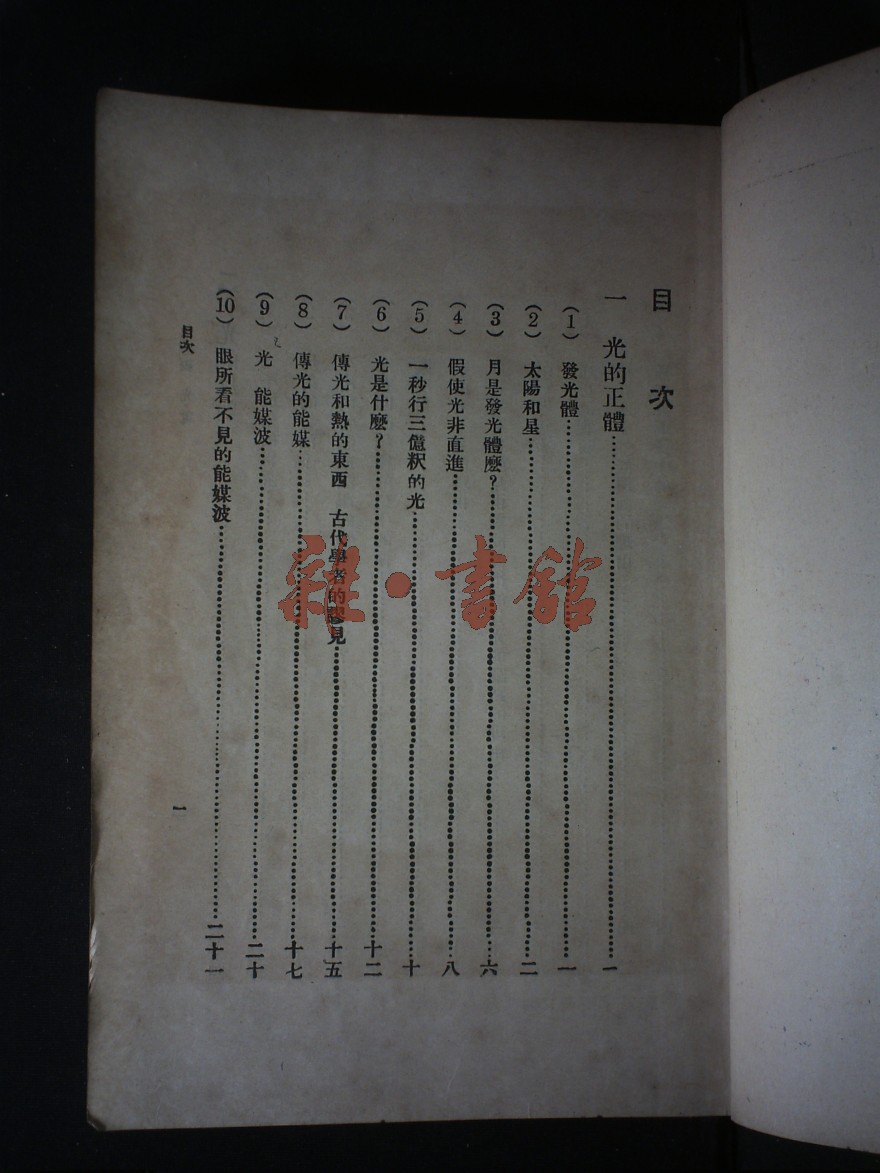 目次
一 光的正體……一
(1) 發光體……一
(2) 太陽和星……二
(3) 月是發光體麽？……六
(4) 假使光非直進……八
(5) 一秒行三億釈的光……十
(6) 光是什麽？……十二
(7) 傳光和熱的東西 古代學者的謬見……十五
(8) 傳光的能媒……十七
(9) 光 能媒波……二十
(10) 眼所看不見的能媒波……二十一
目次
一
雜·書館